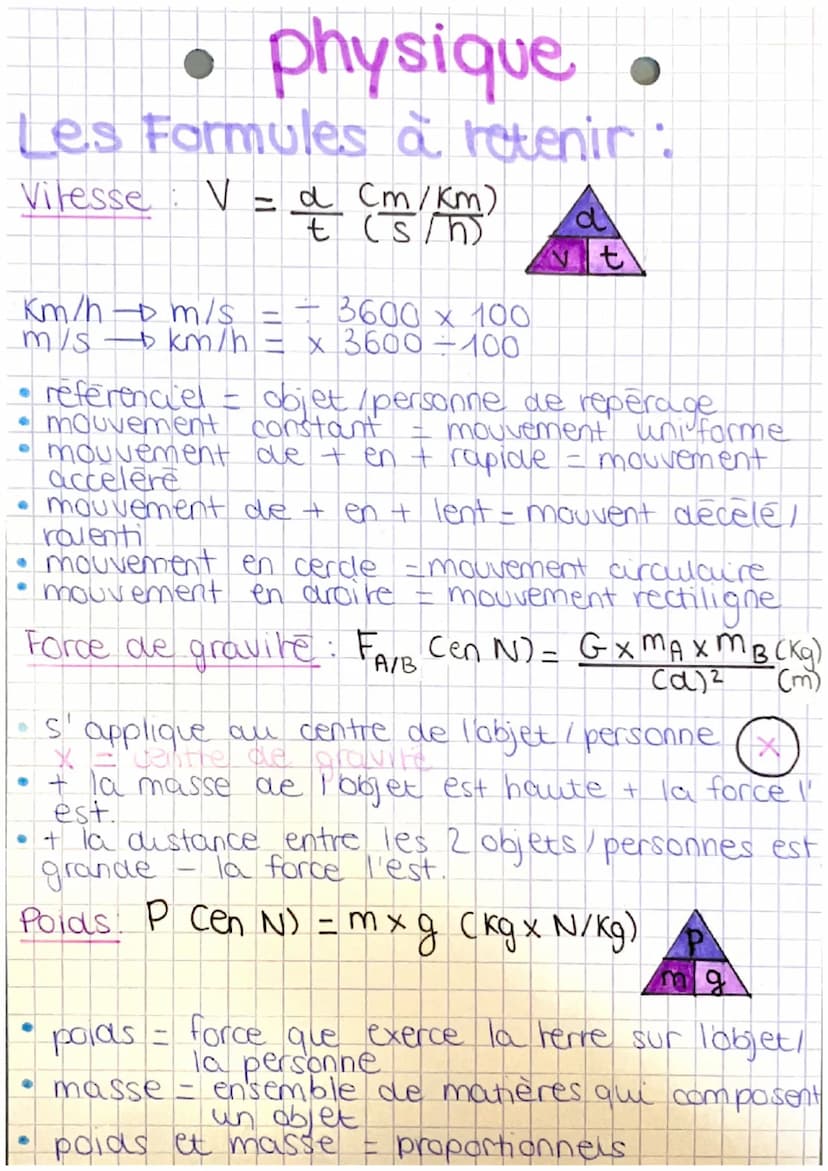 physique
Les Formules à retenir :
Vitesse : V = d/t (m/Km) (s/h)
d
v t
Km/h → m/s = ÷ 3600 x 100
m/s → km/h = x 3600 ÷ 100
• référenciel = objet/personne de repérage
• mouvement constant = mouvement uniforme
• mouvement de + en + rapide = mouvement
accéléré
• mouvement de + en + lent = mouvent décélé/
ralenti
• mouvement en cercle = mouvement circulaire
• mouvement en droite = mouvement rectiligne
Force de gravité : F A/B (en N) = G x mA x mB (Kg)
(d)² (m)
• s'applique au centre de l'objet/personne x
x = centre de gravité
• + la masse de l'objet est haute + la force l'
est.
• + la distance entre les 2 objets/personnes est
grande - la force l'est.
Poids : P (en N) = m x g (Kg x N/Kg)
P
m g
• poids = force que exerce la terre sur l'objet/
la personne
• masse = ensemble de matières qui composent
un objet
• poids et masse = proportionnels